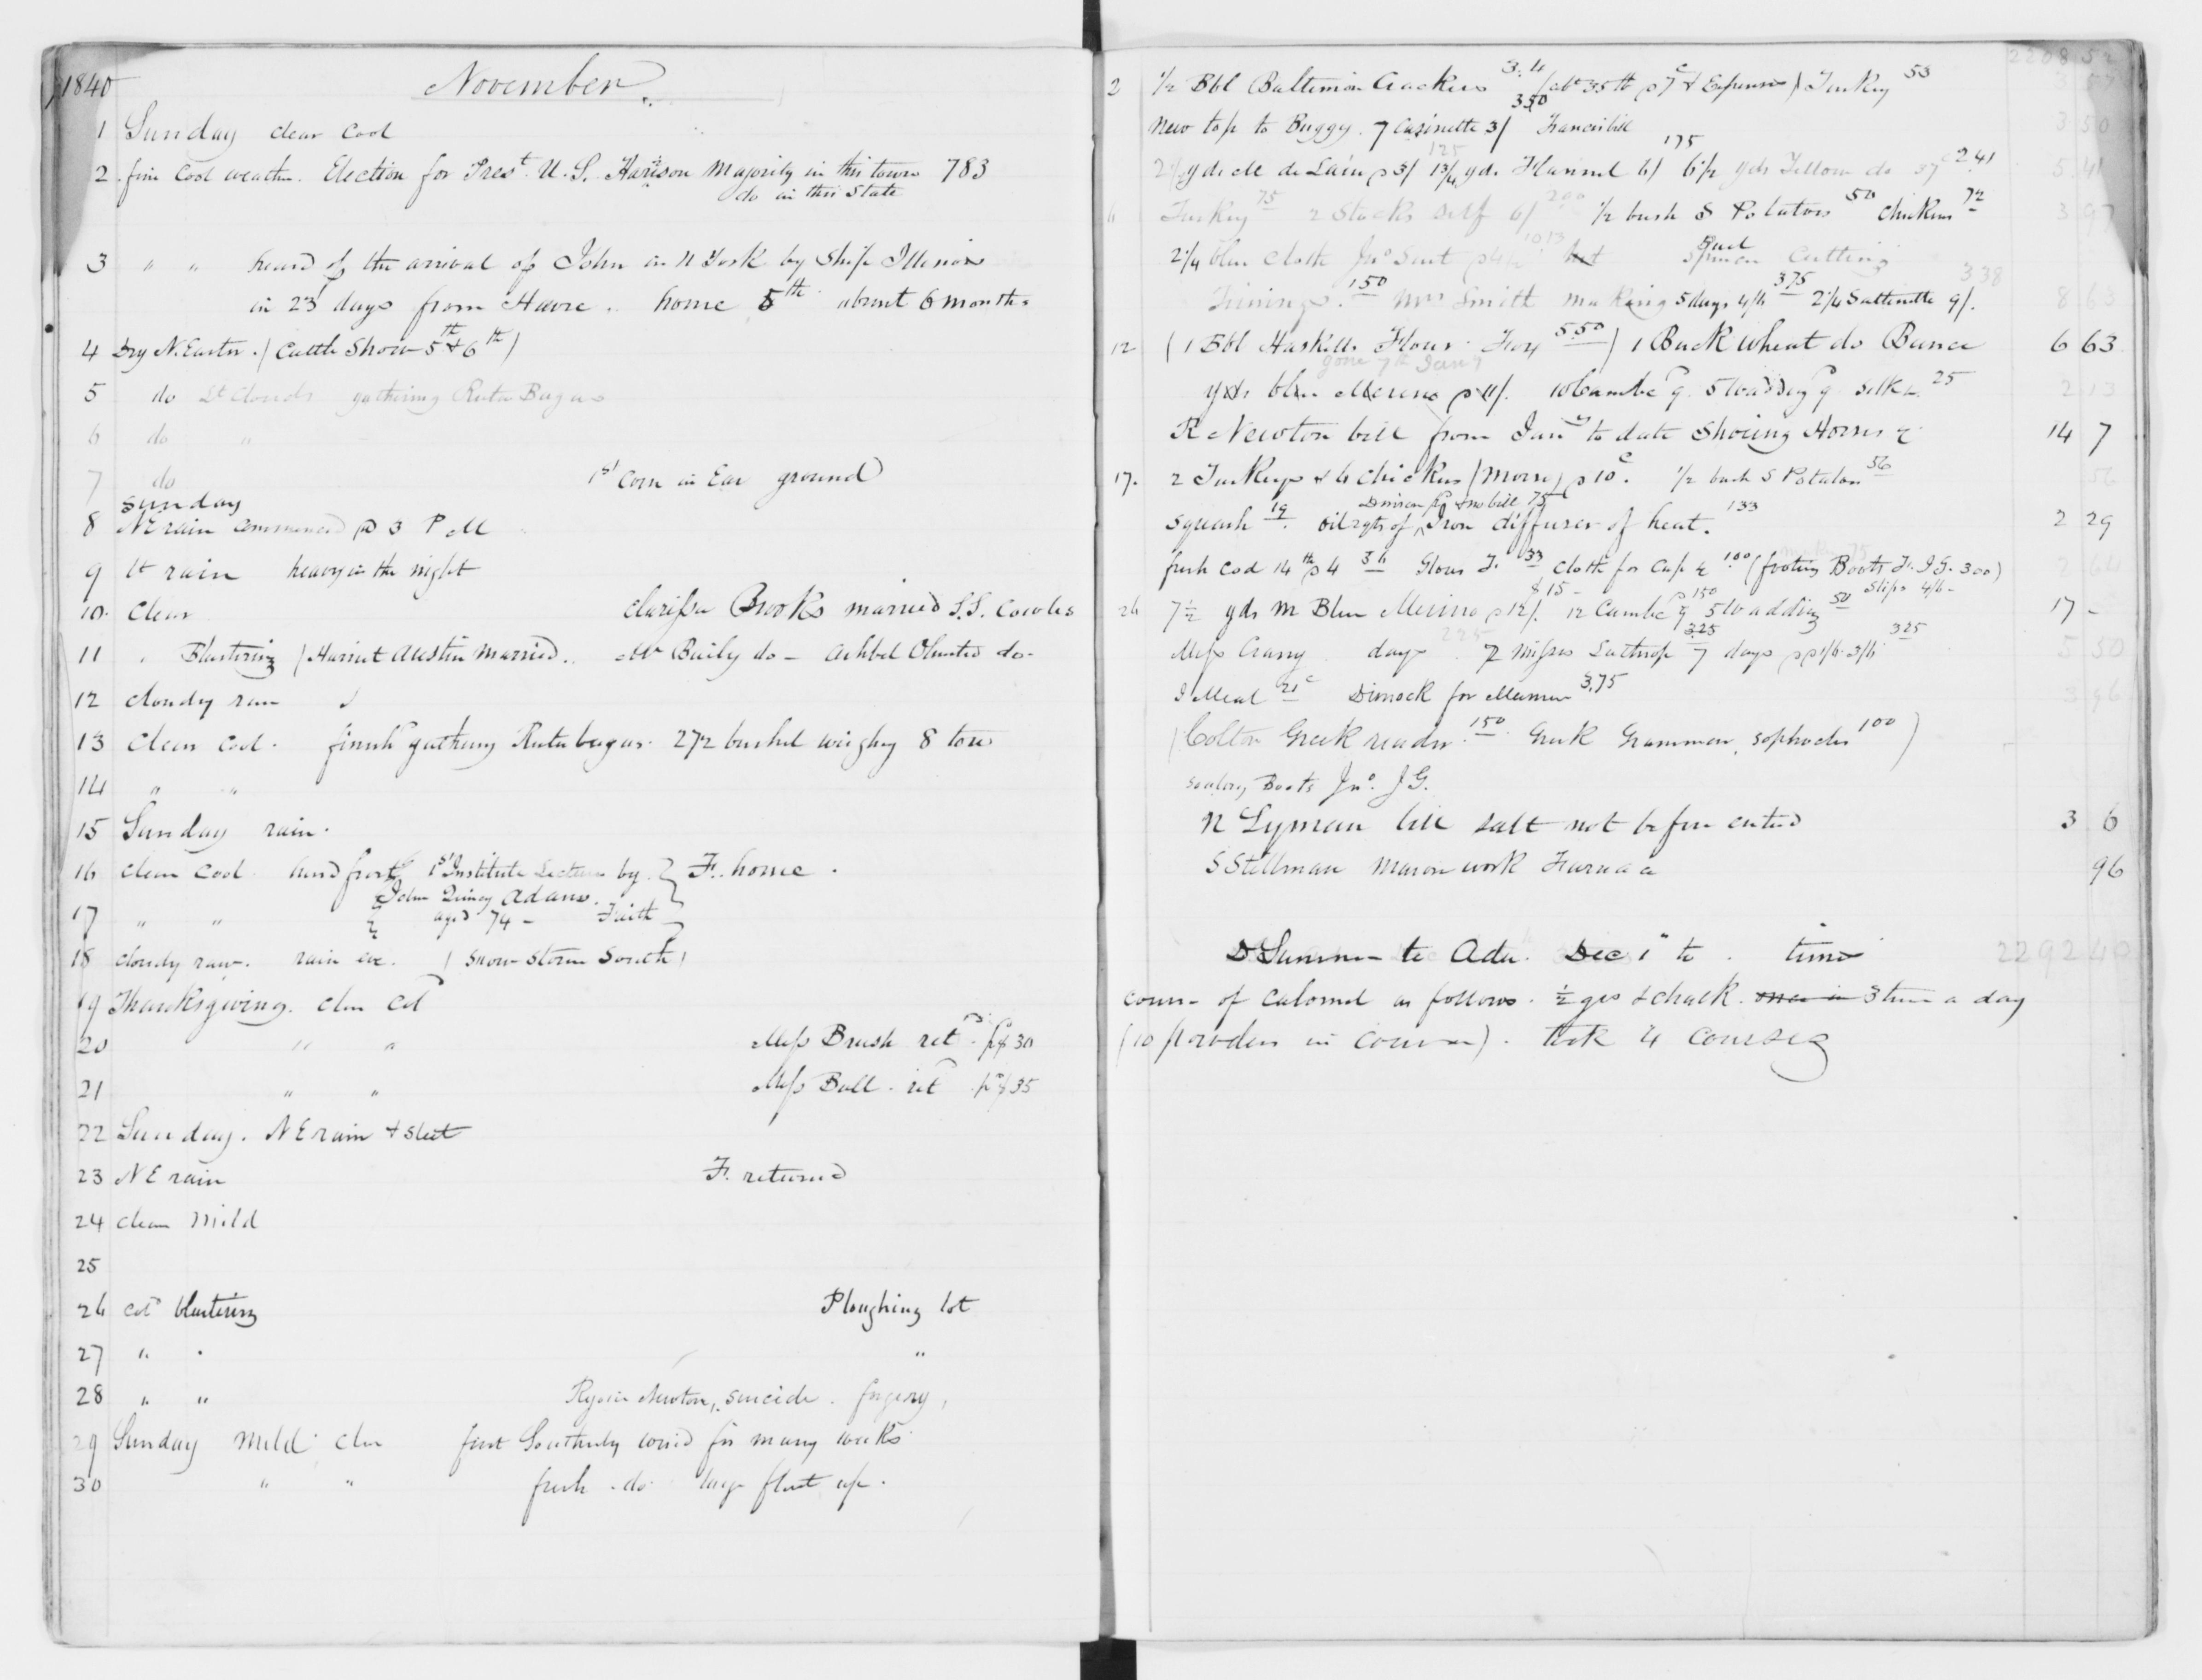 1840 November
1 Sunday clear Cool
2 fine Cool weather. Election for Prest. U.S. Harrison Majority in this town 783
do in this State
3 " " heard of the arrival of John in N York by Ship Illinois
in 23 days from Havre .. home 5th absent 6 months
4 Dry N. Easter. / Cattle Show 5th & 6th /
5 do Lt Clouds gathering Ruta Bagas
6 do "
7 do 1st Corn in Ear ground
Sunday
8 NE rain commenced @ 3 P M
9 lt rain heavy in the night
10. Clear Clarissa Brooks married S.S. Cowles
11 . Blustering / Harriet Austin married. Mr Baily do - Ashbel Olmsted do-
12 Cloudy raw
13 Clear Cool. finish gathering Rutabagas. 272 bushel weighing 8 tons
14 " "
15 Sunday rain.
16 clear Cool hard frost 1st Institute Lecture by F. home.
John Quincy Adams.
17 " " aged 74 - Faith
18 cloudy raw. rain eve. / Snow Storm South /
19 Thanksgiving. clear Cold
20 " " Miss Brush ret. 30
21 " " Miss Bull. ret 35
22 Sunday. N E rain & sleet
23 N E rain F. returned
24 clear mild
25
26 Cold blustering Ploughing lot
27 " . "
28 " " Newton, suicide. forgery,
29 Sunday Mild clear first Southerly wind for many weeks
30 " " fresh . do.
2208 52
2 1/2 Bbl Baltimore Crackers 3.4 / abt 35 lb @ 7c & Expenses / Turkey 53
350
New top to Buggy. 7 Casinette 3/ Francis bill 3 50
2 1/2 yds M de Lain @ 5/ 125 1 3/4 yds Flannel 6/ 175 6 1/2 yds Yellow do 37c 2.41 5 41
Turkey 75 2 Stocks self 6/ 200 1/2 bush S Potatoes 50 chickens 72 3 97
2 1/4 blue Cloth Jno Suit 1013 Cutting
338
Trimings. 150 Mrs Smith making 5 days 4/6 375 2 1/4 Sattinette 9/. 8 63
12 (1 Bbl Haskills Flour. 5.50) 1 Buckwheat do Bunce 6 63
gone 7th Jany
yds blue Merino @ 11/. 10 Cambc 9 5 Wadding 9 silk &c 25 2 13
R Newton bill from Jany to date Shoeing Horses &c 14 7
17. 2 Turkeys & 4 chickens / Morse / @ 10c. 1/2 bush S Potatoes 56 56
squash 19. Iron diffuser of heat. 133 2 29
fresh Cod 14 lb @ 4 56 Gloves F. 33 cloth for Cap &c 100 (footing Boots Jr. J.G. 300) 2 64
$15 - 150 50 Slips 4/6 -
26 7 1/2 yds M Blue Merino @ 12/. 12 Cambc 9 5 Wadding 17 -
225 325 325
Miss Crary days 7 Misses Lathrop 7 days 5 50
I Meal 21c Dimock for Mermer 3.75 3 96
(Colton Greek reader. 150 Greek Grammar, Sophocles 100)
Boots Jno. J G.
N Lyman bill salt not before entered 3 6
S Stillman Mason work Furnace 96
2292 40
Dr Sumner to Ada. Dec 1st to . time
course of Calomel as follows. 1/2 grs & chalk. once in 3 times a day
(10 powders in course). took 4 courses